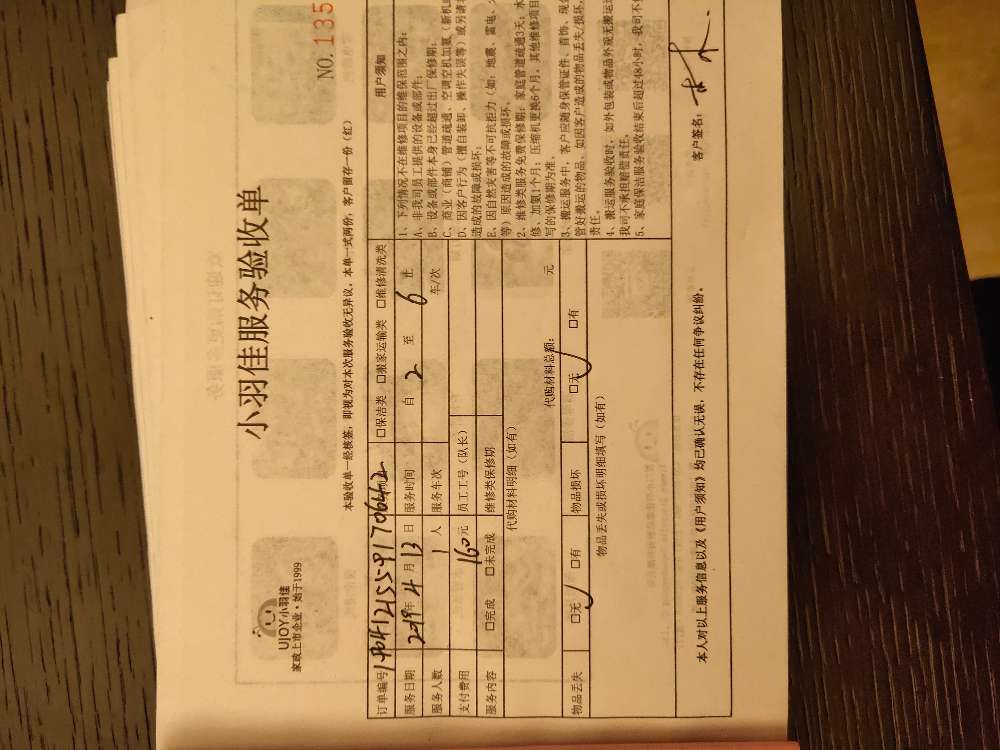 UJOY小羽佳
家政上市企业·始于1999
小羽佳服务验收单
NO.135
本验收单一经核签，即视为对本次服务验收无异议。本单一式两份，客户留存一份（红）
订单编号 □保洁类 □搬家运输类 □维修清洗类
服务日期 2019年4月13日 服务时间 自 2 至 6 止
服务人数 1 人 服务车次 车/次
支付费用 160元 员工工号（队长）
服务内容 □完成 □未完成 维修类保修期
代购材料明细（如有）
代购材料总额： 元
物品丢失 □无 □有 物品损坏 □无 □有
物品丢失或损坏明细填写（如有）
用户须知
1、下列情况不在维修项目的维保范围之内：
A、非我司员工提供的设备或部件；
B、设备或部件本身已经超过出厂保修期；
C、商业（商铺）管道疏通、空调空机加氨（新机
D、因客户行为（擅自装卸、操作失误等）或另请
造成的故障或损坏；
E、因自然灾害等不可抗拒力（如：地震、雷电、
等）原因造成的故障或损坏。
2、维修类服务免费保修期：家庭管道疏通3天；水
修、加氨1个月；压缩机更换6个月，其他维修项目
写的保修期为准。
3、搬运服务中，客户应随身保管证件、首饰、现
管好搬运的物品，如因客户造成的物品丢失/损坏，
责任。
4、搬运服务验收时，如外包装或物品外观无搬运
我司不承担赔偿责任。
5、家庭保洁服务验收结束后超过48小时，我司不
本人对以上服务信息以及《用户须知》均已确认无误，不存在任何争议纠纷。
客户签名：